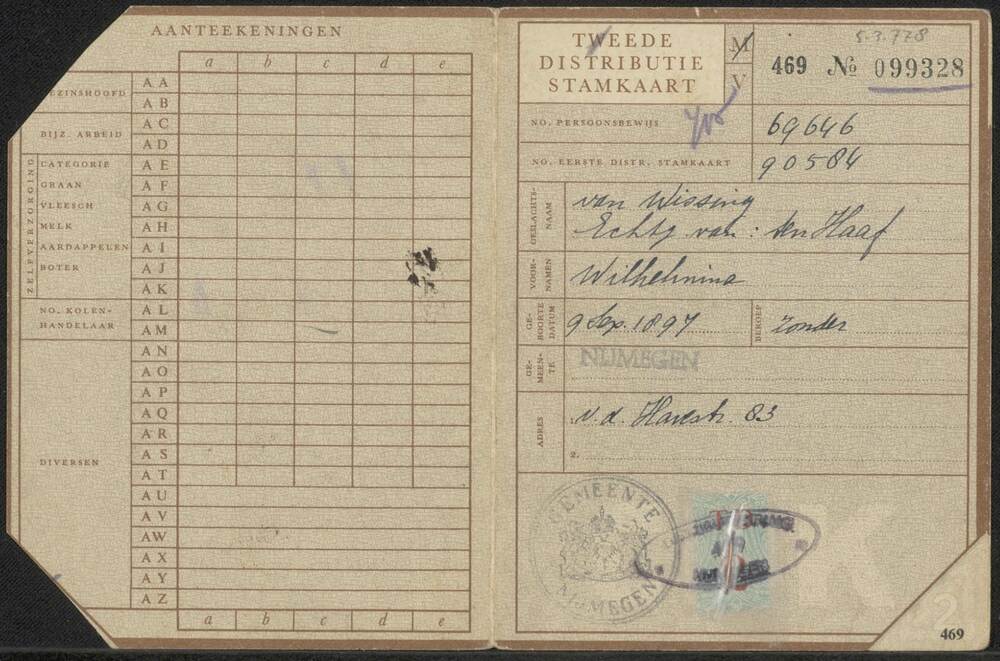 AANTEEKENINGEN
a b c d e
GEZINSHOOFD
AA
AB
BIJZ. ARBEID
AC
AD
ZELFVERZORGING
CATEGORIE
AE
GRAAN
AF
VLEESCH
AG
MELK
AH
AARDAPPELEN
AI
BOTER
AJ
AK
NO. KOLEN-
HANDELAAR
AL
AM
DIVERSEN
AN
AO
AP
AQ
AR
AS
AT
AU
AV
AW
AX
AY
AZ
a b c d e
TWEEDE
DISTRIBUTIE
STAMKAART
M
V
5.3.778
469 No 099328
NO. PERSOONSBEWIJS 69646
NO. EERSTE DISTR. STAMKAART 90584
GESLACHTS-
NAAM
van Wissing
Echtg. van: ten Haaf
VOOR-
NAMEN
Wilhelmina
GE-
BOORTE
DATUM
9 Sep. 1897
BEROEP
zonder
GE-
MEEN-
TE
NIJMEGEN
ADRES
1. v.d. Havestr. 83
2.
GEMEENTE
NIJMEGEN
469